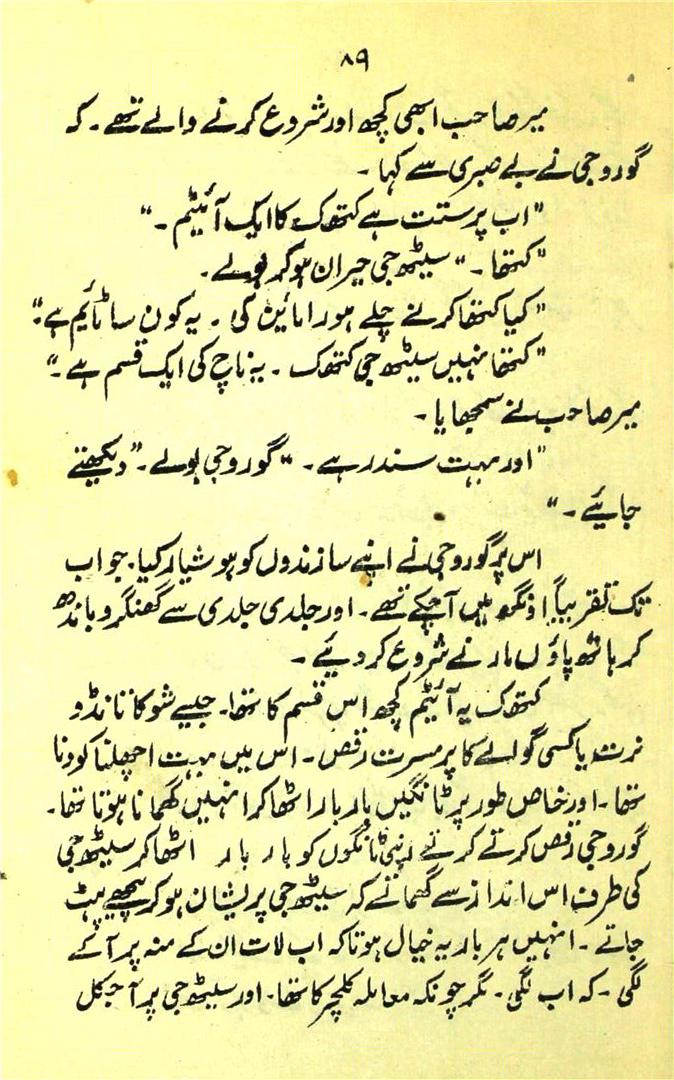 ۸۹
میر صاحب ابھی کچھ اور شروع کرنے والے تھے۔ کہ
گورو جی نے بے صبری سے کہا۔
"اب پرستت ہے کتھوک کا ایک آئیٹم۔"
"کتھا۔" سیٹھ جی حیران ہو کر بولے۔
"کیا کتھا کرنے چلے ہو رامائین کی۔ یہ کون سا ٹائیم ہے"
"کتھا نہیں سیٹھ جی کتھوک۔ یہ ناچ کی ایک قسم ہے۔"
میر صاحب نے سمجھایا۔
"اور بہت سندر ہے۔" گورو جی بولے۔ "دیکھتے
جائیے۔"
اس پر گورو جی نے اپنے سازندوں کو ہوشیار کیا۔ جو اب
تک تقریباً اونگھ میں آ چکے تھے۔ اور جلدی جلدی سے گھنگرو باندھ
کر ہاتھ پاؤں مارنے شروع کر دیئے۔
کتھوک یہ آئیٹم کچھ اس قسم کا تھا۔ جیسے شو کا تانڈو
نرت یا کسی گوالے کا پر مسرت رقص۔ اس میں بہت اچھلنا کودنا
تھا۔ اور خاص طور پر ٹانگیں بار بار اٹھا کر انہیں گھمانا ہوتا تھا۔
گورو جی رقص کرتے کرتے اپنی ٹانگوں کو بار بار اٹھا کر سیٹھ جی
کی طرف اس انداز سے گھماتے کہ سیٹھ جی پریشان ہو کر پیچھے ہٹ
جاتے۔ انہیں ہر بار یہ خیال ہوتا کہ اب لات ان کے منہ پر آ کے
لگی۔ کہ اب لگی۔ مگر چونکہ معاملہ کلچر کا تھا۔ اور سیٹھ جی پر آجکل